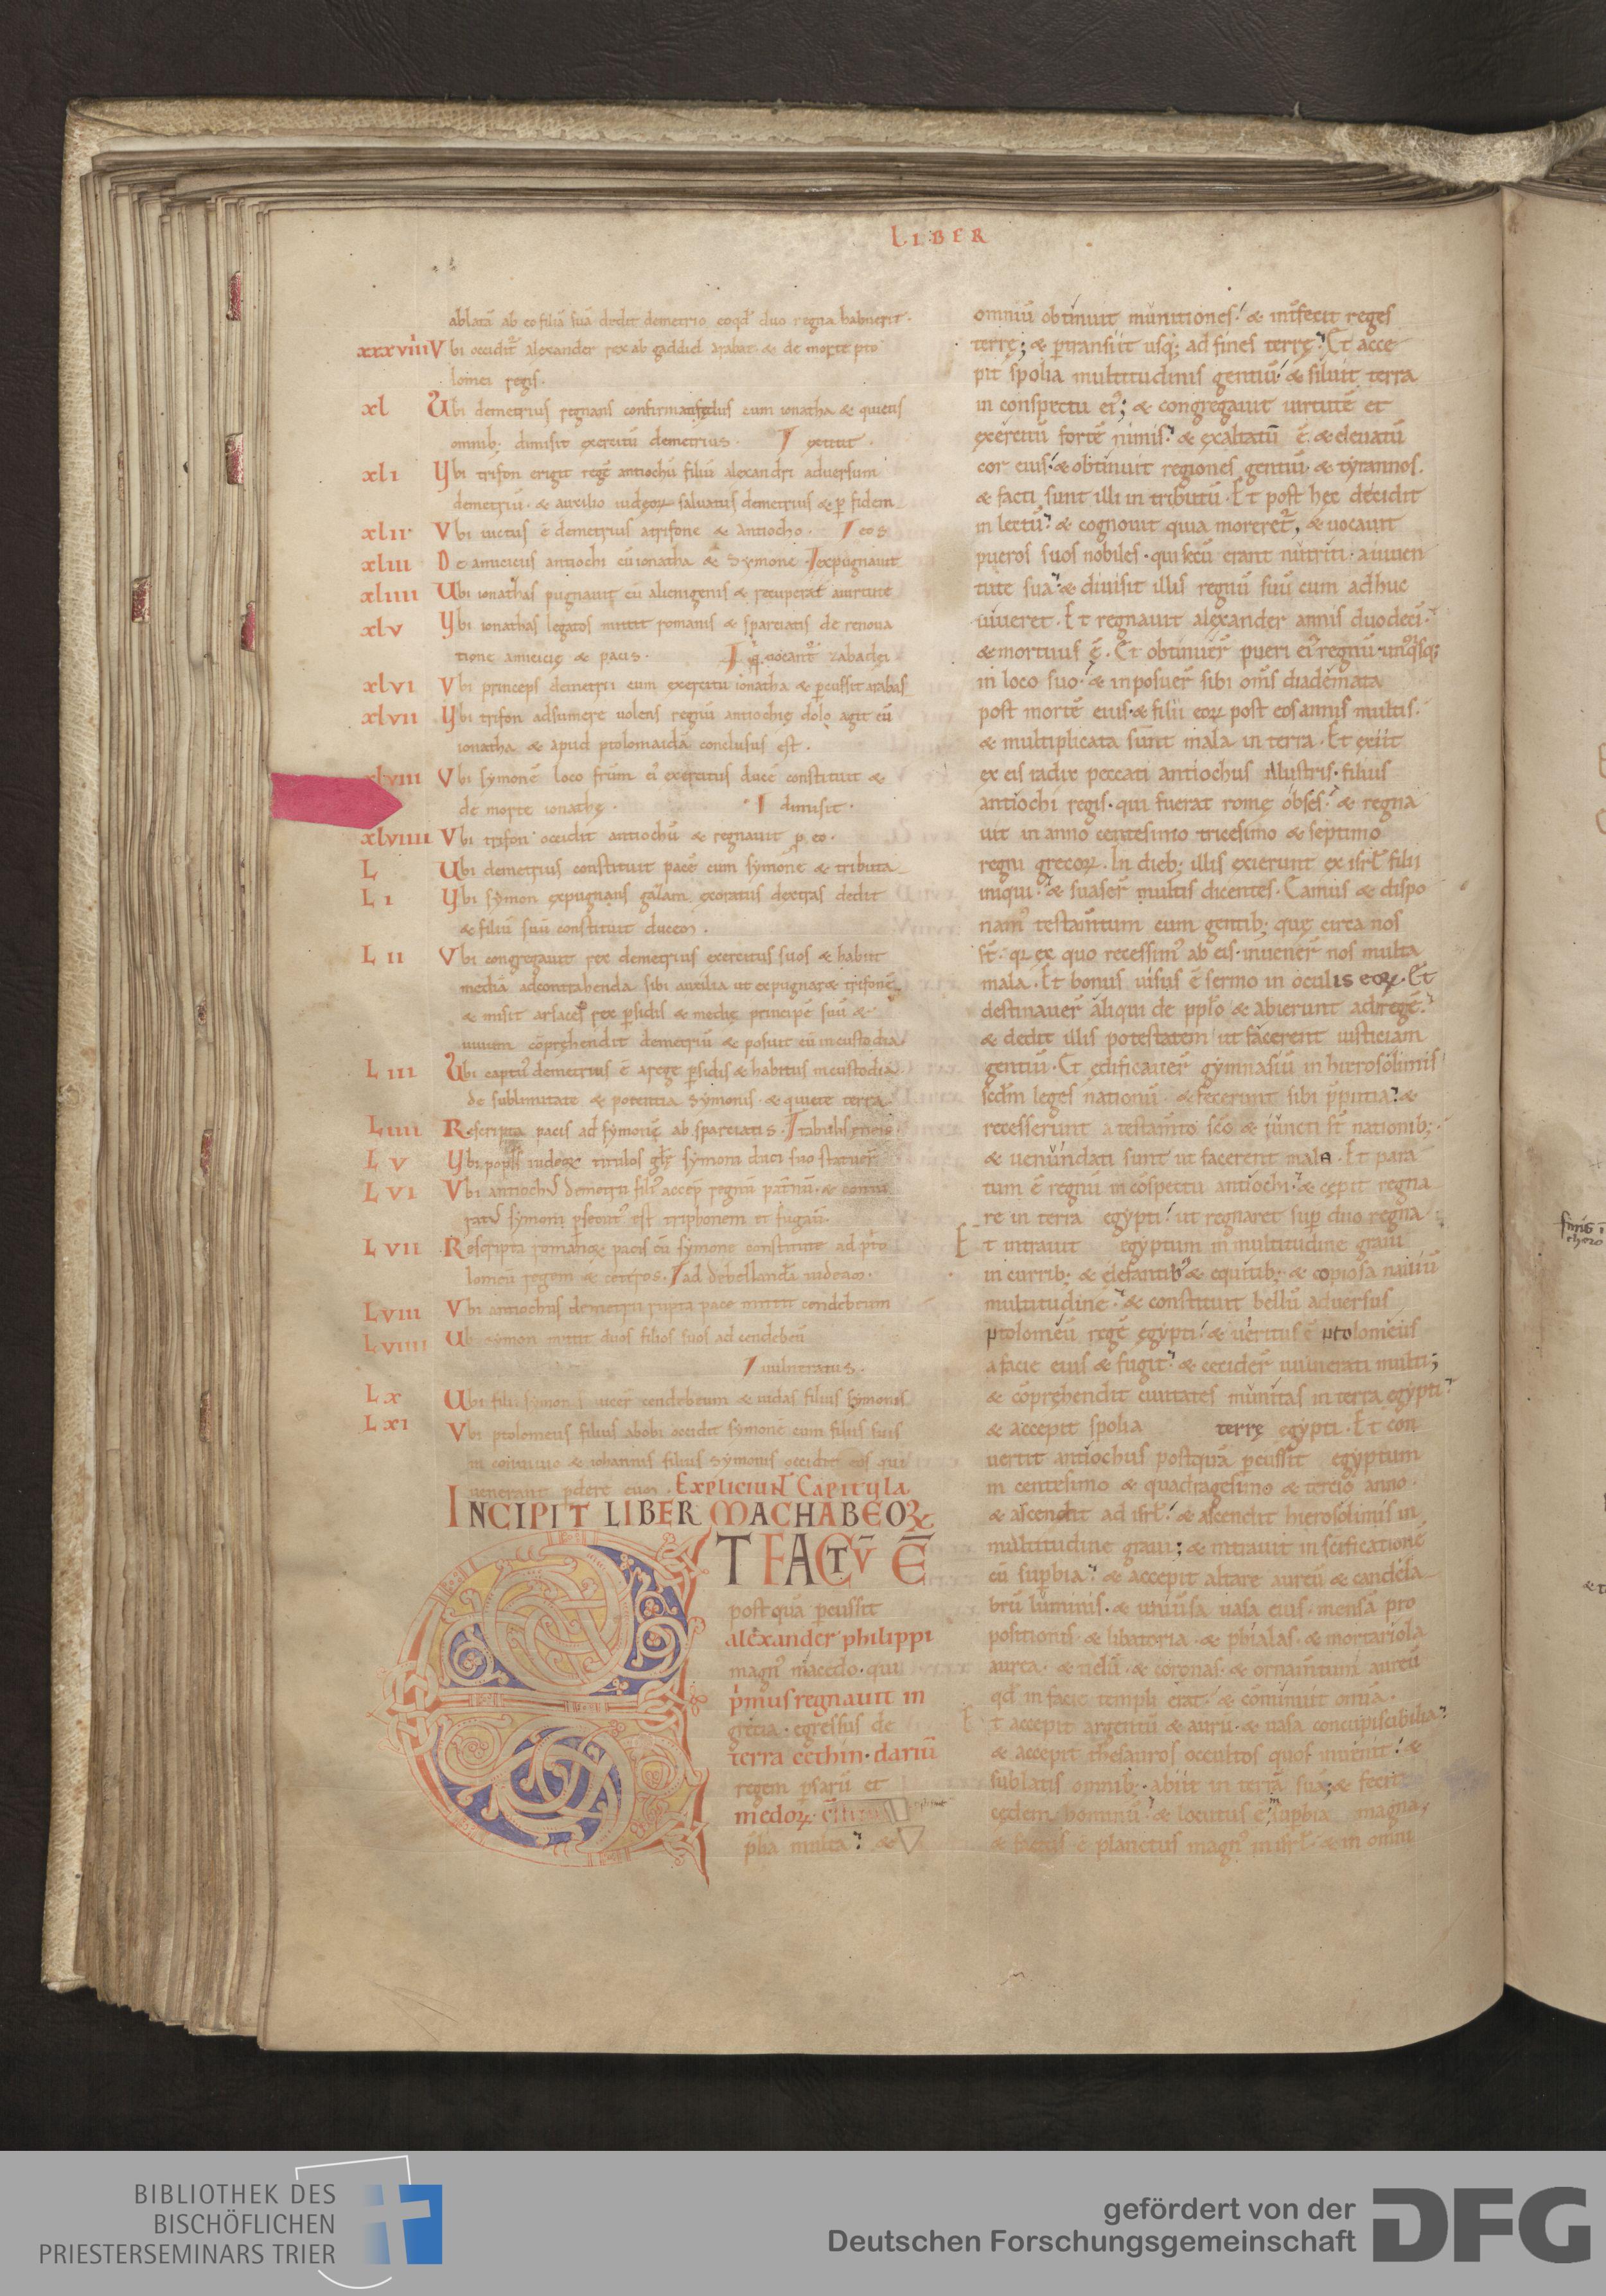 LIBER
ablatā ab eo filiā suā dedit demetrio eoqd' duo regna habuerit.
xxxviiii Vbi occidit² alexander rex ab gaddiel arabat & de morte pto
lomei regis.
xl Vbi demetrius regnans confirmat fedus cum ionatha & quiens
omnib; dimisit exercitū demetrius. extitit.
xli Vbi trifon erigit regē antiochū filiū alexandri aduersum
demetriū. & auxilio iudeoꝝ saluatus demetrius & ꝑ fidem
xlii Vbi uictus ē demetrius atrifone & antiocho. eos
xliii De amicicus antiochi cū ionatha & symone expugnauit
xliiii Ubi ionathas pugnauit cū alienigenis & recuperat auirtute
xlv Vbi ionathas legatos mittit romanis & sparciatis de renoua
tione amicicię & pacis. q̄ uocant² zabadei
xlvi Vbi princeps demetrii cum exercitu ionatha & ꝑcussit arabas
xlvii Vbi trifon adsumere uolens regnū antiochię dolo agit cū
ionatha & apud ptolomaidā conclusus est.
xlviii Vbi symonē loco fr̄m ei² exercitus ducē constituit &
de morte ionathę. dimisit.
xlviiii Vbi trifon occidit antiochū & regnauit ꝑ eo.
L Ubi demetrius constituit pacē cum symone & tributa
LI Vbi symon expugnans gazam exoratus dextras dedit
& filiū suū constituit ducem.
LII Vbi congregauit rex demetrius exercitus suos & habiit
mediā adcontrahenda sibi auxilia ut expugnaræ trifonē
& misit arsaces rex ꝑsidis & medię principē suū &
uiuum cōprehendit demetriū & posuit eū incustodia.
LIII Vbi captus demetrius ē arege ꝑsidis & habitus incustodia.
de sublimitate & potentia symonis. & quiete terra
LIIII Rescripta pacis ad symonē ab sparciatis.
LV Vbi popls iudeoꝝ titulos gl̄ę symoni duci suo statuer̄
LVI Vbi antiochus demetrii filius accep̄ regnū patnū. &
symoni ꝑsecut² est triphonem et fugau̅.
LVII Rescripta romanoꝝ pacis cū symone constitute ad pto
lomeū regem & ceteros. ad debellandā iudeam.
LVIII Vbi antiochus demetrii rupta pace mittit cendebeum
LVIIII Ubi symon mittit duos filios suos ad cendebeū
uulneratus.
LX Ubi filii symonis uicer̄ cendebeum & iudas filius symonis
LXI Vbi ptolomeus filius abobi occidit symonē cum filiis suis
in conuiuio & iohannis filius symonis occidit eos qui
uenerant ꝑdere eum. Expliciunt Capitula.
INCIPIT LIBER MACHABEOꝝ
ET FACTV̄ Ē
postquā ꝑcussit
alexander philippi
magn² macedo. qui
pr̄mus regnauit in
gręcia. egressus de
terra cethim. dariū
regem ꝑsarū et
medoꝝ.
ꝓlia multa. &
omniū obtinuit munitiones. & int̄fecit reges
terrę; & ꝑtransiit usq; ad fines terrę. Et acce
pit spolia multitudinis gentiū. & siluit terra
in conspectu ei²; & congregauit uirtutē et
exercitū fortē nimis. & exaltatū ē. & eleuatū
cor eius. & obtinuit regiones gentiū. & tyrannos.
& facti sunt illi in tributū. Et post hęc decidit
in lectū. & cognouit quia moreret², & uocauit
pueros suos nobiles. qui secū erant nutriti. a iuuen
tute sua. & diuisit illis regnū suū cum adhuc
uiueret. Et regnauit alexander annis duodecī.
& mortuus ē. Et obtinuer̄ pueri ei² regnū. un²q²sq;
in loco suo. & inposuer̄ sibi om̄s diademata
post mortē eius. & filii eoꝝ post eos annis multis.
& multiplicata sunt mala in terra. Et exiit
ex eis radix peccati antiochus illustris. filius
antiochi regis. qui fuerat romę obses. & regna
uit in anno centesimo tricesimo & septimo
regni grecoꝝ. In dieb; illis exierunt ex isrl̄ filii
iniqui. & suaser̄ multis dicentes. Eamus & dispo
nam² testamtum cum gentib; quę circa nos
st̄. qꝛ ex quo recessim² ab eis. inuener̄ nos multa
mala. Et bonus uisus ē sermo in oculis eoꝝ. Et
destinauer̄ aliqui de pplo & abierunt ad regē.
& dedit illis potestatem ut facerent iusticiam
gentiū. Et edificauer̄ gymnasiū in hierosolimis
scdm leges nationū. & fecerunt sibi p̄putia. &
recesserunt a testam̄to scō & iuncti st̄ nationib;.
& uenundati sunt ut facerent mala. Et para
tum ē regnū in cōspectu antiochi. & cępit regna
re in terra egypti. ut regnaret suꝑ duo regna
Et intrauit egyptum in multitudine graui
in currib; & elefantib² & equitib; & copiosa nauiū
multitudine. & constituit bellū aduersus
ptolomeū regē egypti. & ueritus ē ptolomeus
a facie eius & fugit. & cecider̄ uulnerati multi;
& cōprehendit ciuitates munitas in terra egypti.
& accepit spolia terrę egypti. Et con
uertit antiochus postquā ꝑcussit egyptum
in centesimo & quadragesimo & tercio anno.
& ascendit ad isrl̄. & ascendit hierosolimis in
multitudine graui; & intrauit in scificationē
cū suꝑbia. & accepit altare aureū & candela
brū luminis. & uniūsa uasa eius. mensā pro
positionis. & libatoria. & phialas. & mortariola
aurea. & uelū. & coronas. & ornamtum aureū
qd' in facie templi erat. & cōminuit omia.
Et accepit argentū & aurū. & uasa concupiscibilia.
& accepit thesauros occultos quos inuenit. &
sublatis omnib; abiit in terrā suā; & fecit
cędem hominū. & locutus ē in suꝑbia magna,
& factus ē planctus magn² in isrl̄. & in omni
BIBLIOTHEK DES
BISCHÖFLICHEN
PRIESTERSEMINARS TRIER
gefördert von der
Deutschen Forschungsgemeinschaft
DFG